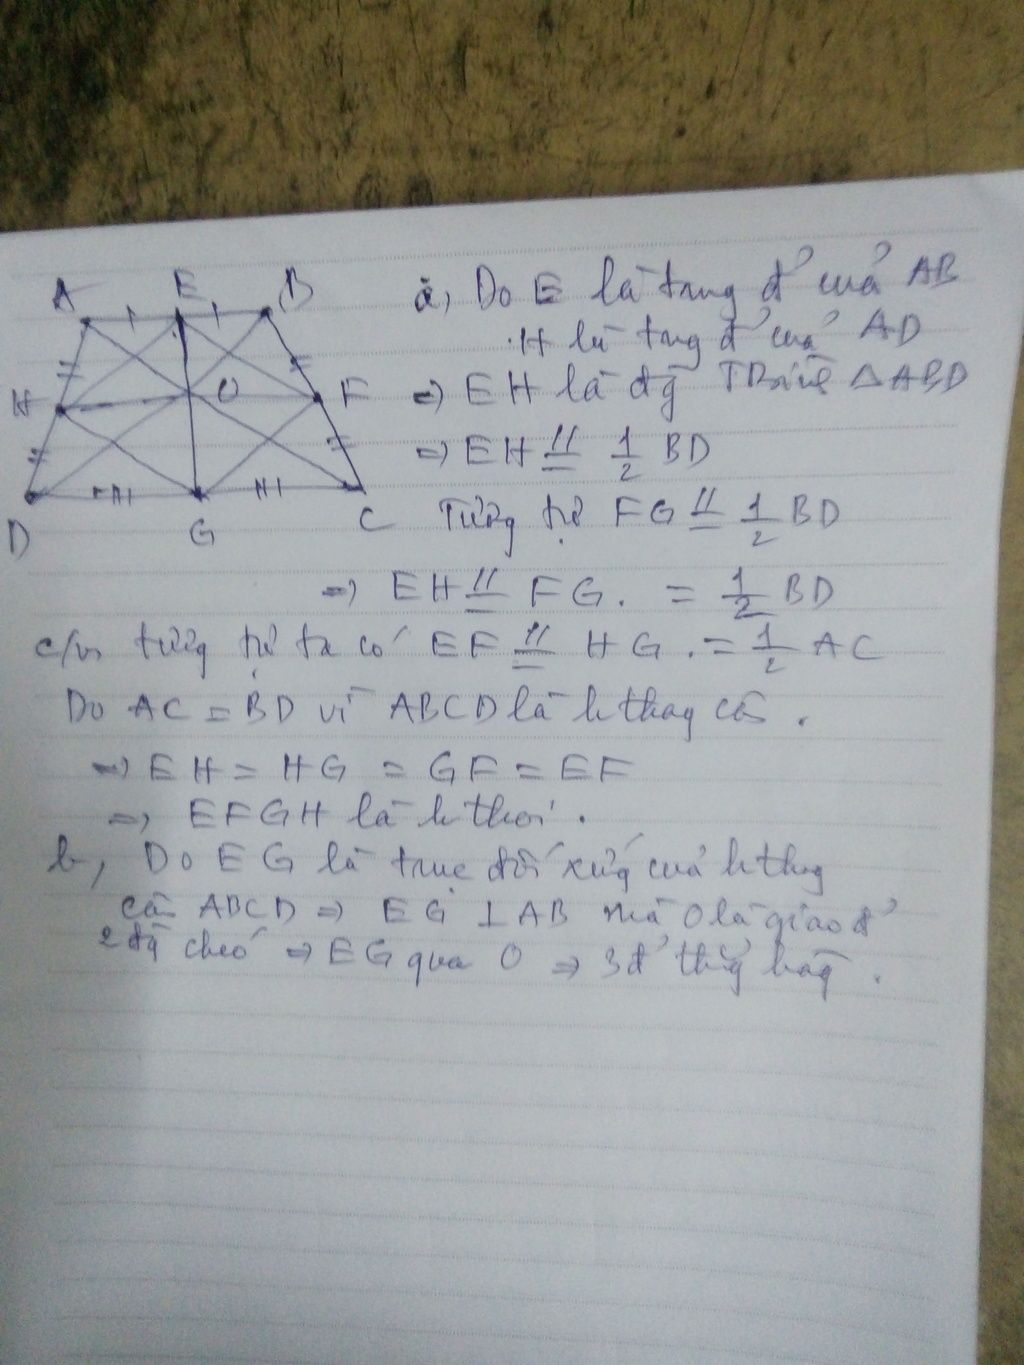 A E B
H O F
D G C
a, Do E là trung đ' của AB
H là trung đ' của AD
=> EH là đg TBình △ABD
=> EH // = 1/2 BD
Tương tự FG // = 1/2 BD
=> EH // = FG. = 1/2 BD
c/m tương tự ta có EF // = HG. = 1/2 AC
Do AC = BD vì ABCD là hthang cân.
=> EH = HG = GF = EF
=> EFGH là hthoi.
b, Do EG là trục đối xứng của hthang
cân ABCD => EG ⊥ AB mà O là giao đ'
2 đg chéo => EG qua O => 3 đ' thẳng hàng.